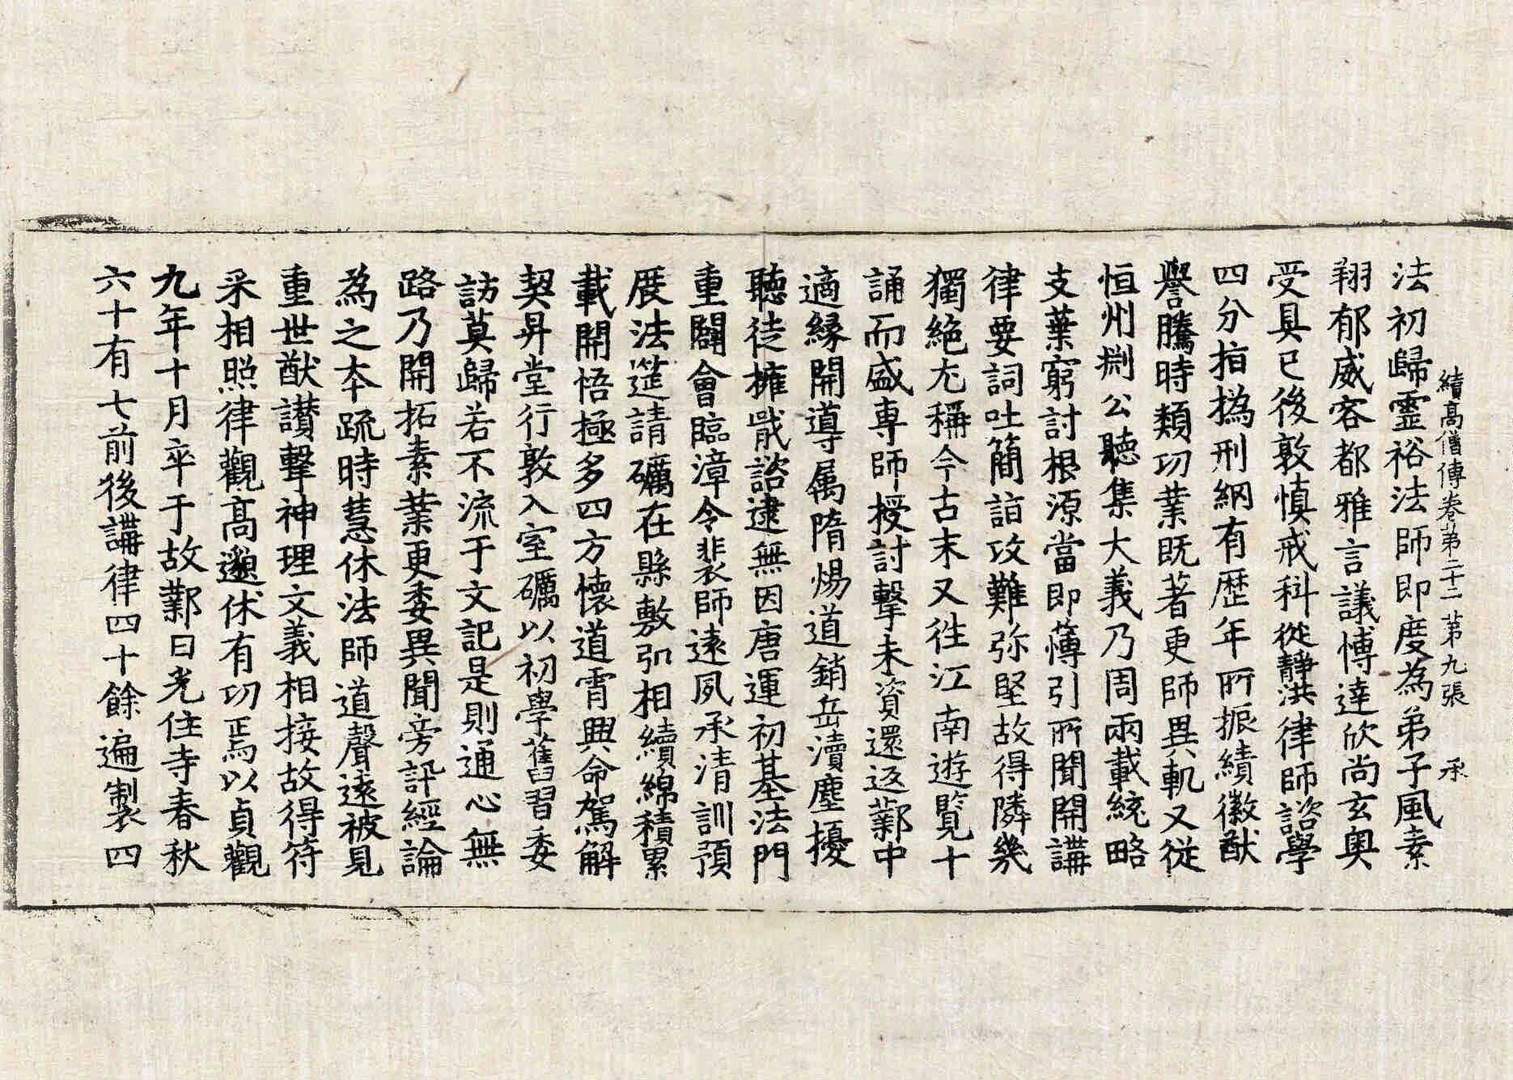 續高僧傳卷第二十二　第九張　承
法初歸靈裕法師即度為弟子風素
翔郁威容都雅言議博達欣尚玄奧
受具已後敦慎戒科從靜洪律師諮學
四分指撝刑綱有歷年所振績徽猷
譽騰時類功業既著更師異軌又從
恒州𠛬公聽集大義乃周兩載統略
支葉窮討根源當即簿引所聞開講
律要詞吐簡詣攻難弥堅故得隣幾
獨絕尤稱今古末又往江南遊覽十
誦而盛專師授討擊未資還返鄴中
適緣開導属隋煬道銷岳瀆塵擾
聽徒擁戢諮逮無因唐運初基法門
重闢會臨漳令裴師遠夙承清訓預
展法筵請礪在縣敷弘相續綿積累
載開悟極多四方懷道霄興命駕解
契昇堂行敦入室礪以初學舊習委
訪莫歸若不流于文記是則通心無
路乃開拓素業更委異聞旁訊經論
為之本疏時慧休法師道聲遠被見
重世猷讃擊神理文義相接故得符
采相照律觀高邈休有功焉以貞觀
九年十月卒于故鄴日光住寺春秋
六十有七前後講律四十餘遍製四